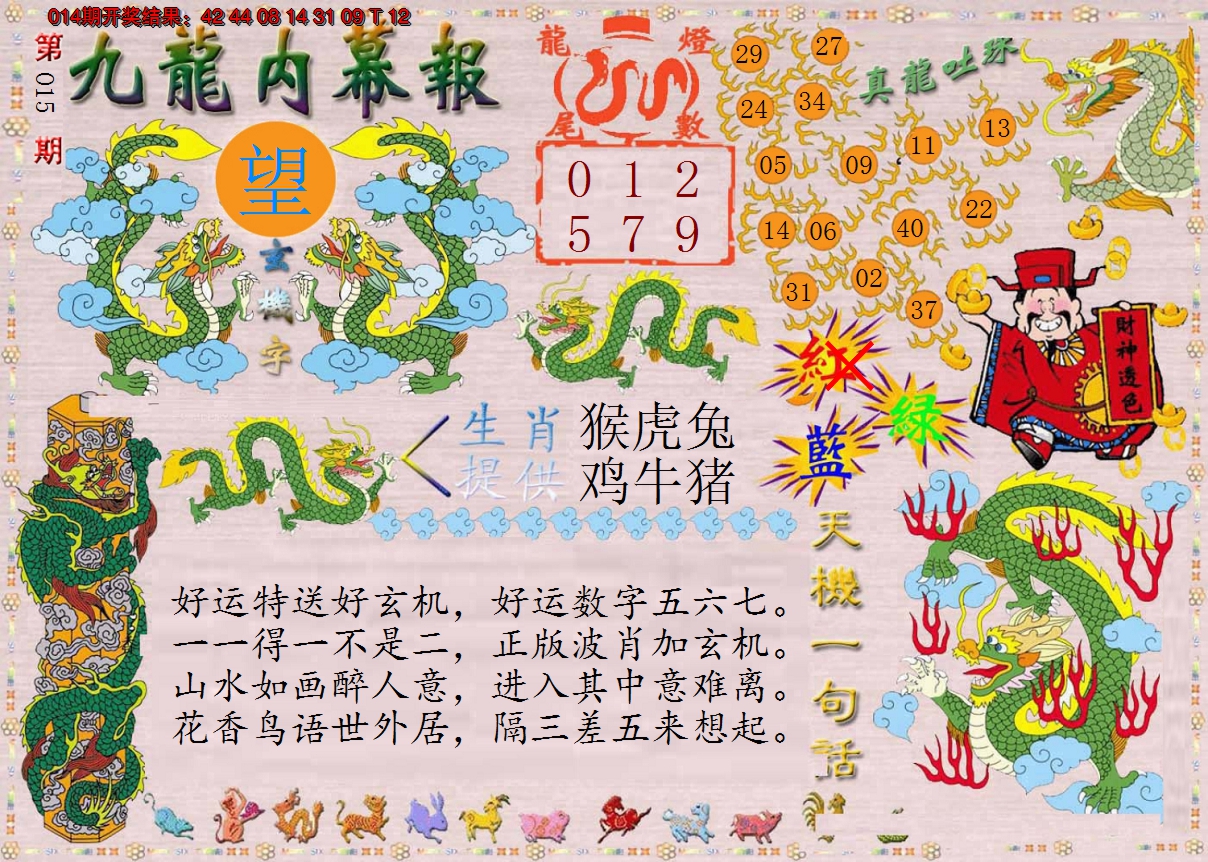 014期开奖结果：42 44 06 14 31 09 T 12
第015期
九龍内幕報
望
玄機字
龍燈
尾數
0 1 2
5 7 9
真龍吐珠
29 27
24 34
05 09 11 13
14 06 40 22
31 02 37
紅
綠
藍
財神透色
生肖 猴虎兔
提供 鸡牛猪
天機一句話
好运特送好玄机，好运数字五六七。
一一得一不是二，正版波肖加玄机。
山水如画醉人意，进入其中意难离。
花香鸟语世外居，隔三差五来想起。